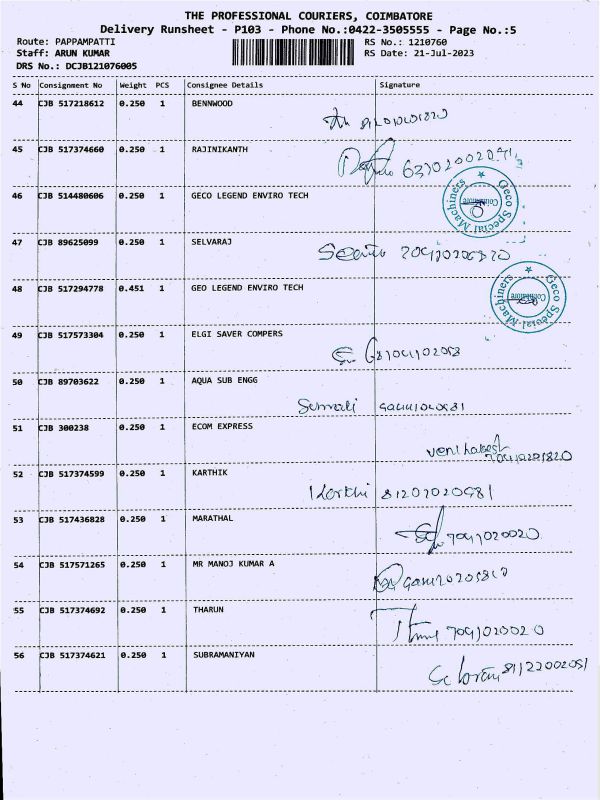 THE PROFESSIONAL COURIERS, COIMBATORE
Delivery Runsheet - P103 - Phone No.:0422-3505555 - Page No.:5
Route: PAPPAMPATTI RS No.: 1210760
Staff: ARUN KUMAR RS Date: 21-Jul-2023
DRS No.: DCJB121076005
S No Consignment No Weight PCS Consignee Details Signature
44 CJB 517218612 0.250 1 BENNWOOD
45 CJB 517374660 0.250 1 RAJINIKANTH
46 CJB 514480606 0.250 1 GECO LEGEND ENVIRO TECH
Geco Special Machiners
Coimbatore
47 CJB 89625099 0.250 1 SELVARAJ
48 CJB 517294778 0.451 1 GEO LEGEND ENVIRO TECH
Geco Special Machiners
Coimbatore
49 CJB 517573304 0.250 1 ELGI SAVER COMPERS
50 CJB 89703622 0.250 1 AQUA SUB ENGG
51 CJB 300238 0.250 1 ECOM EXPRESS
52 CJB 517374599 0.250 1 KARTHIK
53 CJB 517436828 0.250 1 MARATHAL
54 CJB 517571265 0.250 1 MR MANOJ KUMAR A
55 CJB 517374692 0.250 1 THARUN
56 CJB 517374621 0.250 1 SUBRAMANIYAN